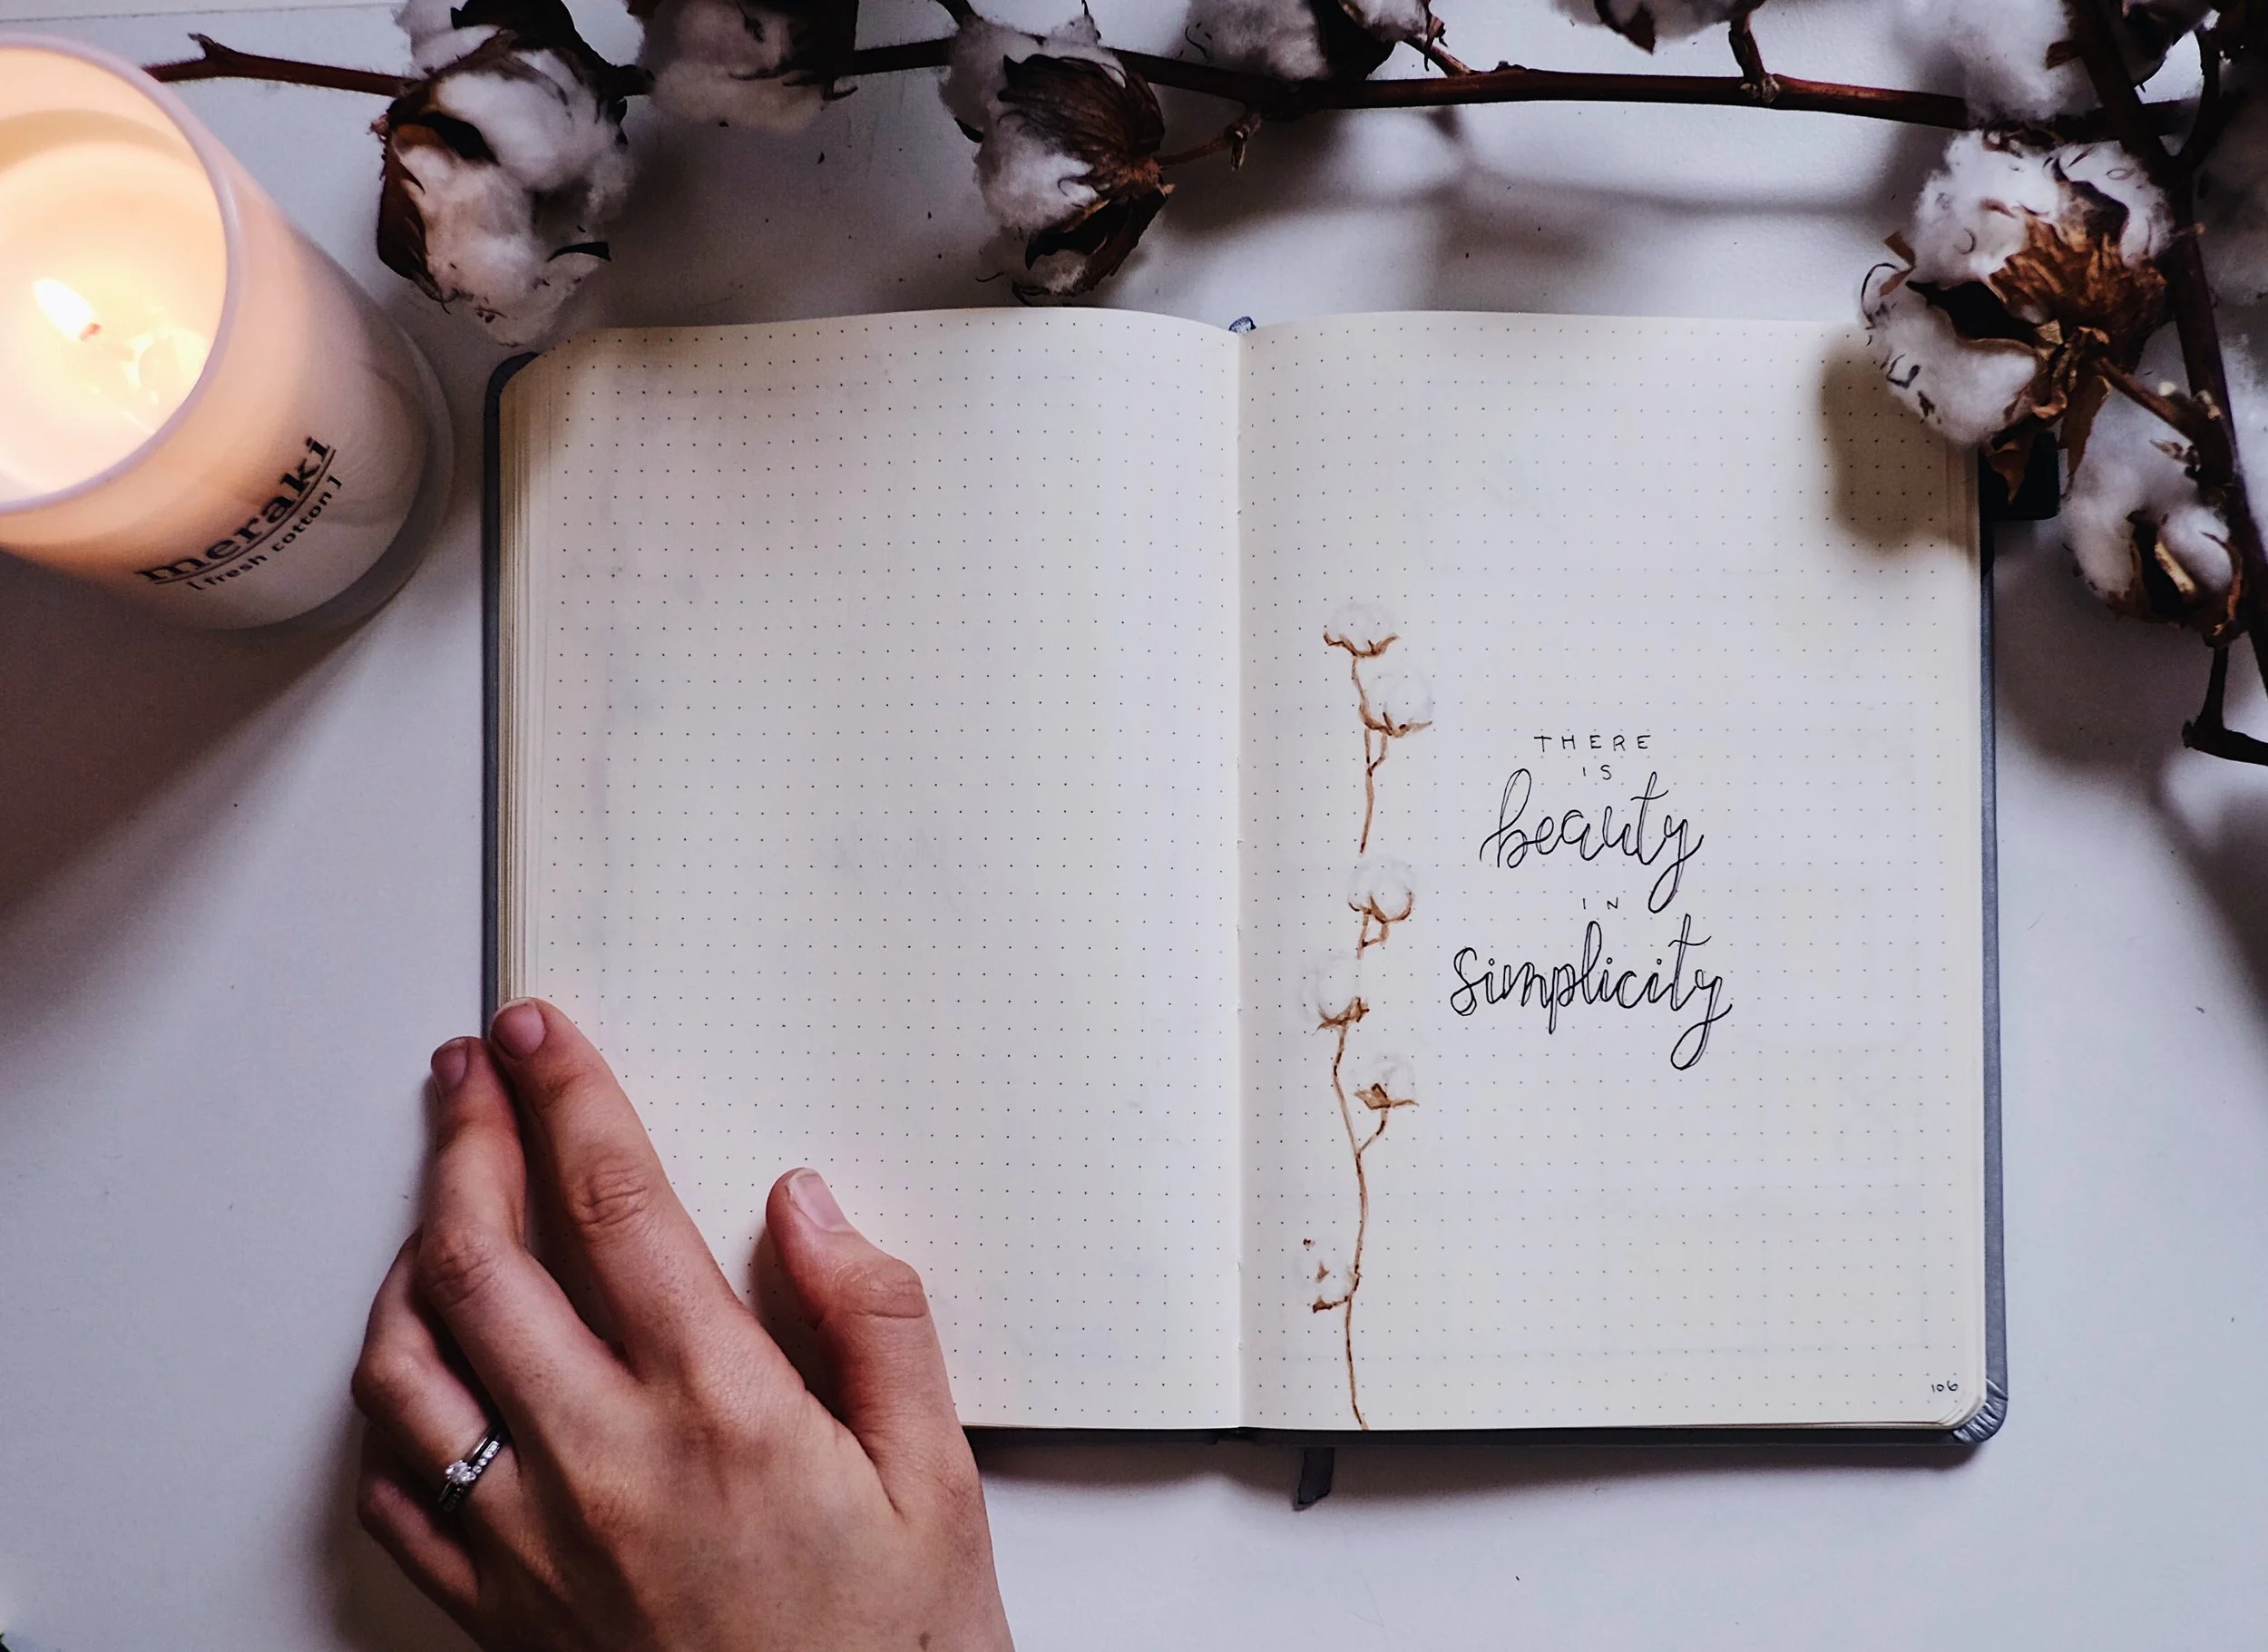 meraki
[fresh cotton]
THERE
IS
beauty
IN
simplicity
106